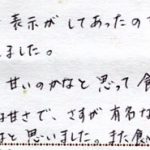 表示がしてあったので
ました。
甘いのかなと思って食
な甘さで、さすが有名な
と思いました。また食